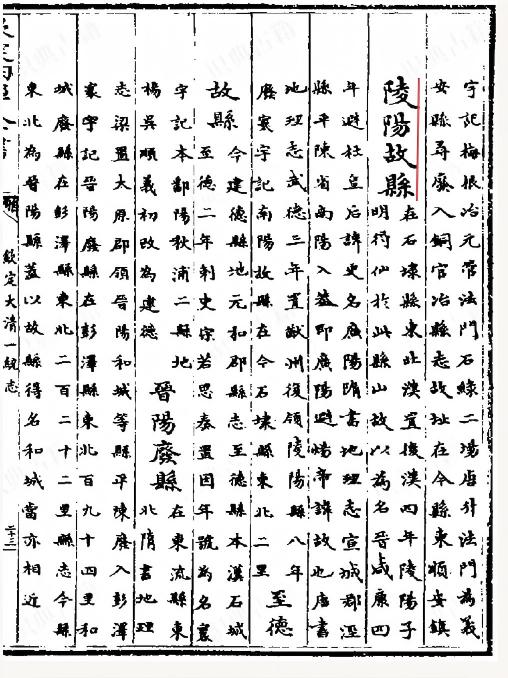 宇記梅根冶元管法門石綠二場唐升法門為義
安縣尋廢入銅官冶縣志故址在今縣東順安鎮
陵陽故縣
在石埭縣東北漢置後漢四年陵陽子
明得仙於此縣山故以為名晉咸康四
年避杜皇后諱更名廣陽隋書地理志宣城郡涇
縣平陳省南陽入蓋即廣陽避煬帝諱故也唐書
地理志武德三年置猷州復領陵陽縣八年
廢寰宇記南陽故縣在今石埭縣東北二里
至德
故縣
今建德縣地元和郡縣志至德縣本漢石城
至德二年刺史宋若思奏置因年號為名寰
宇記本鄱陽秋浦二縣地
楊吳順義初改為建德
晉陽廢縣
在東流縣東
北隋書地理
志梁置太原郡領晉陽和城等縣平陳廢入彭澤
寰宇記晉陽廢縣在彭澤縣東北百九十四里和
城廢縣在彭澤縣東北二百二十二里縣志今縣
東北為晉陽縣蓋以故縣得名和城當亦相近
欽定大清一統志
二十三